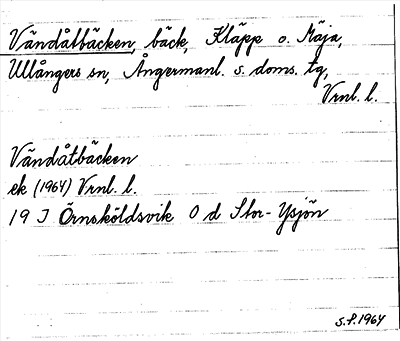 Vändåtbäcken, bäck, Kläpp o. Mäja,
Ullångers sn, Ångermanl. s. doms. tg,
Vrnl. l.
Vändåtbäcken
ek (1964) Vrnl. l.
19 J Örnsköldsvik O d Stor-Ysjön
S.P. 1964